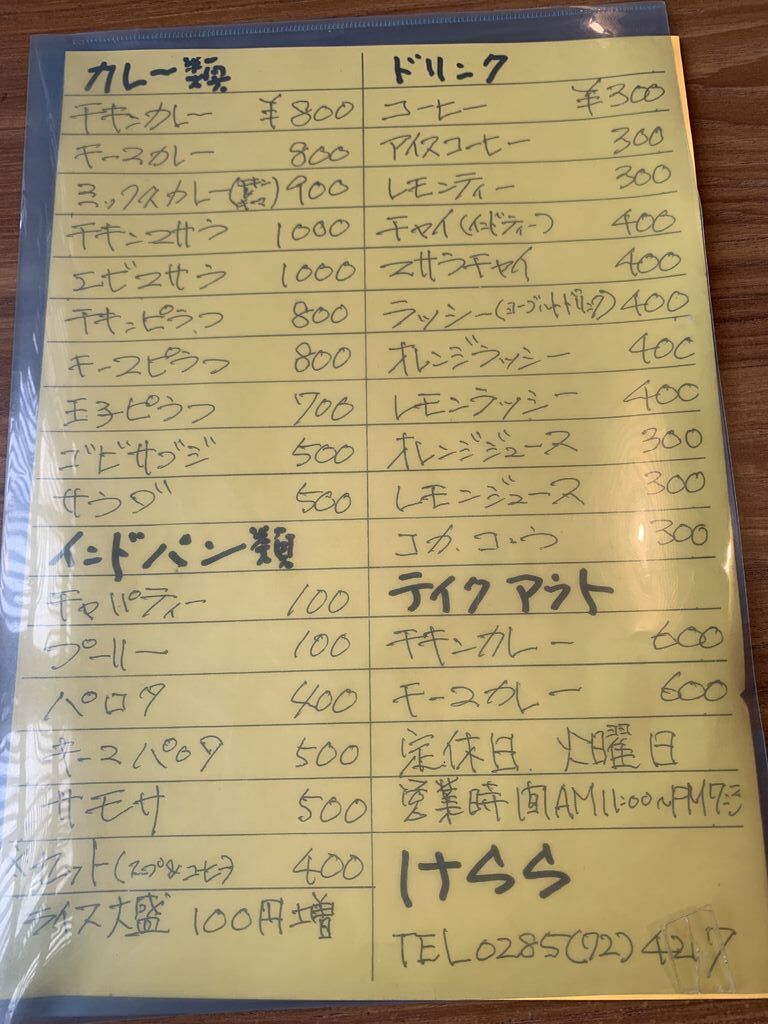 カレー類
チキンカレー ¥800
キーマカレー 800
ミックスカレー(チキン キーマ) 900
チキンマサラ 1000
エビマサラ 1000
チキンピラフ 800
キーマピラフ 800
玉子ピラフ 700
ゴビサブジ 500
サラダ 500
インドパン類
チャパティー 100
プーリー 100
パロタ 400
キーマパロタ 500
サモサ 500
400
ライス大盛 100円増
ドリンク
コーヒー ¥300
アイスコーヒー 300
レモンティー 300
チャイ(インドティー) 400
マサラチャイ 400
ラッシー(ヨーグルトドリンク) 400
オレンジラッシー 400
レモンラッシー 400
オレンジジュース 300
レモンジュース 300
コカ・コーラ 300
テイクアウト
チキンカレー 600
キーマカレー 600
定休日 火曜日
営業時間 AM11:00~PM7:
けらら
TEL 0285(72)4217